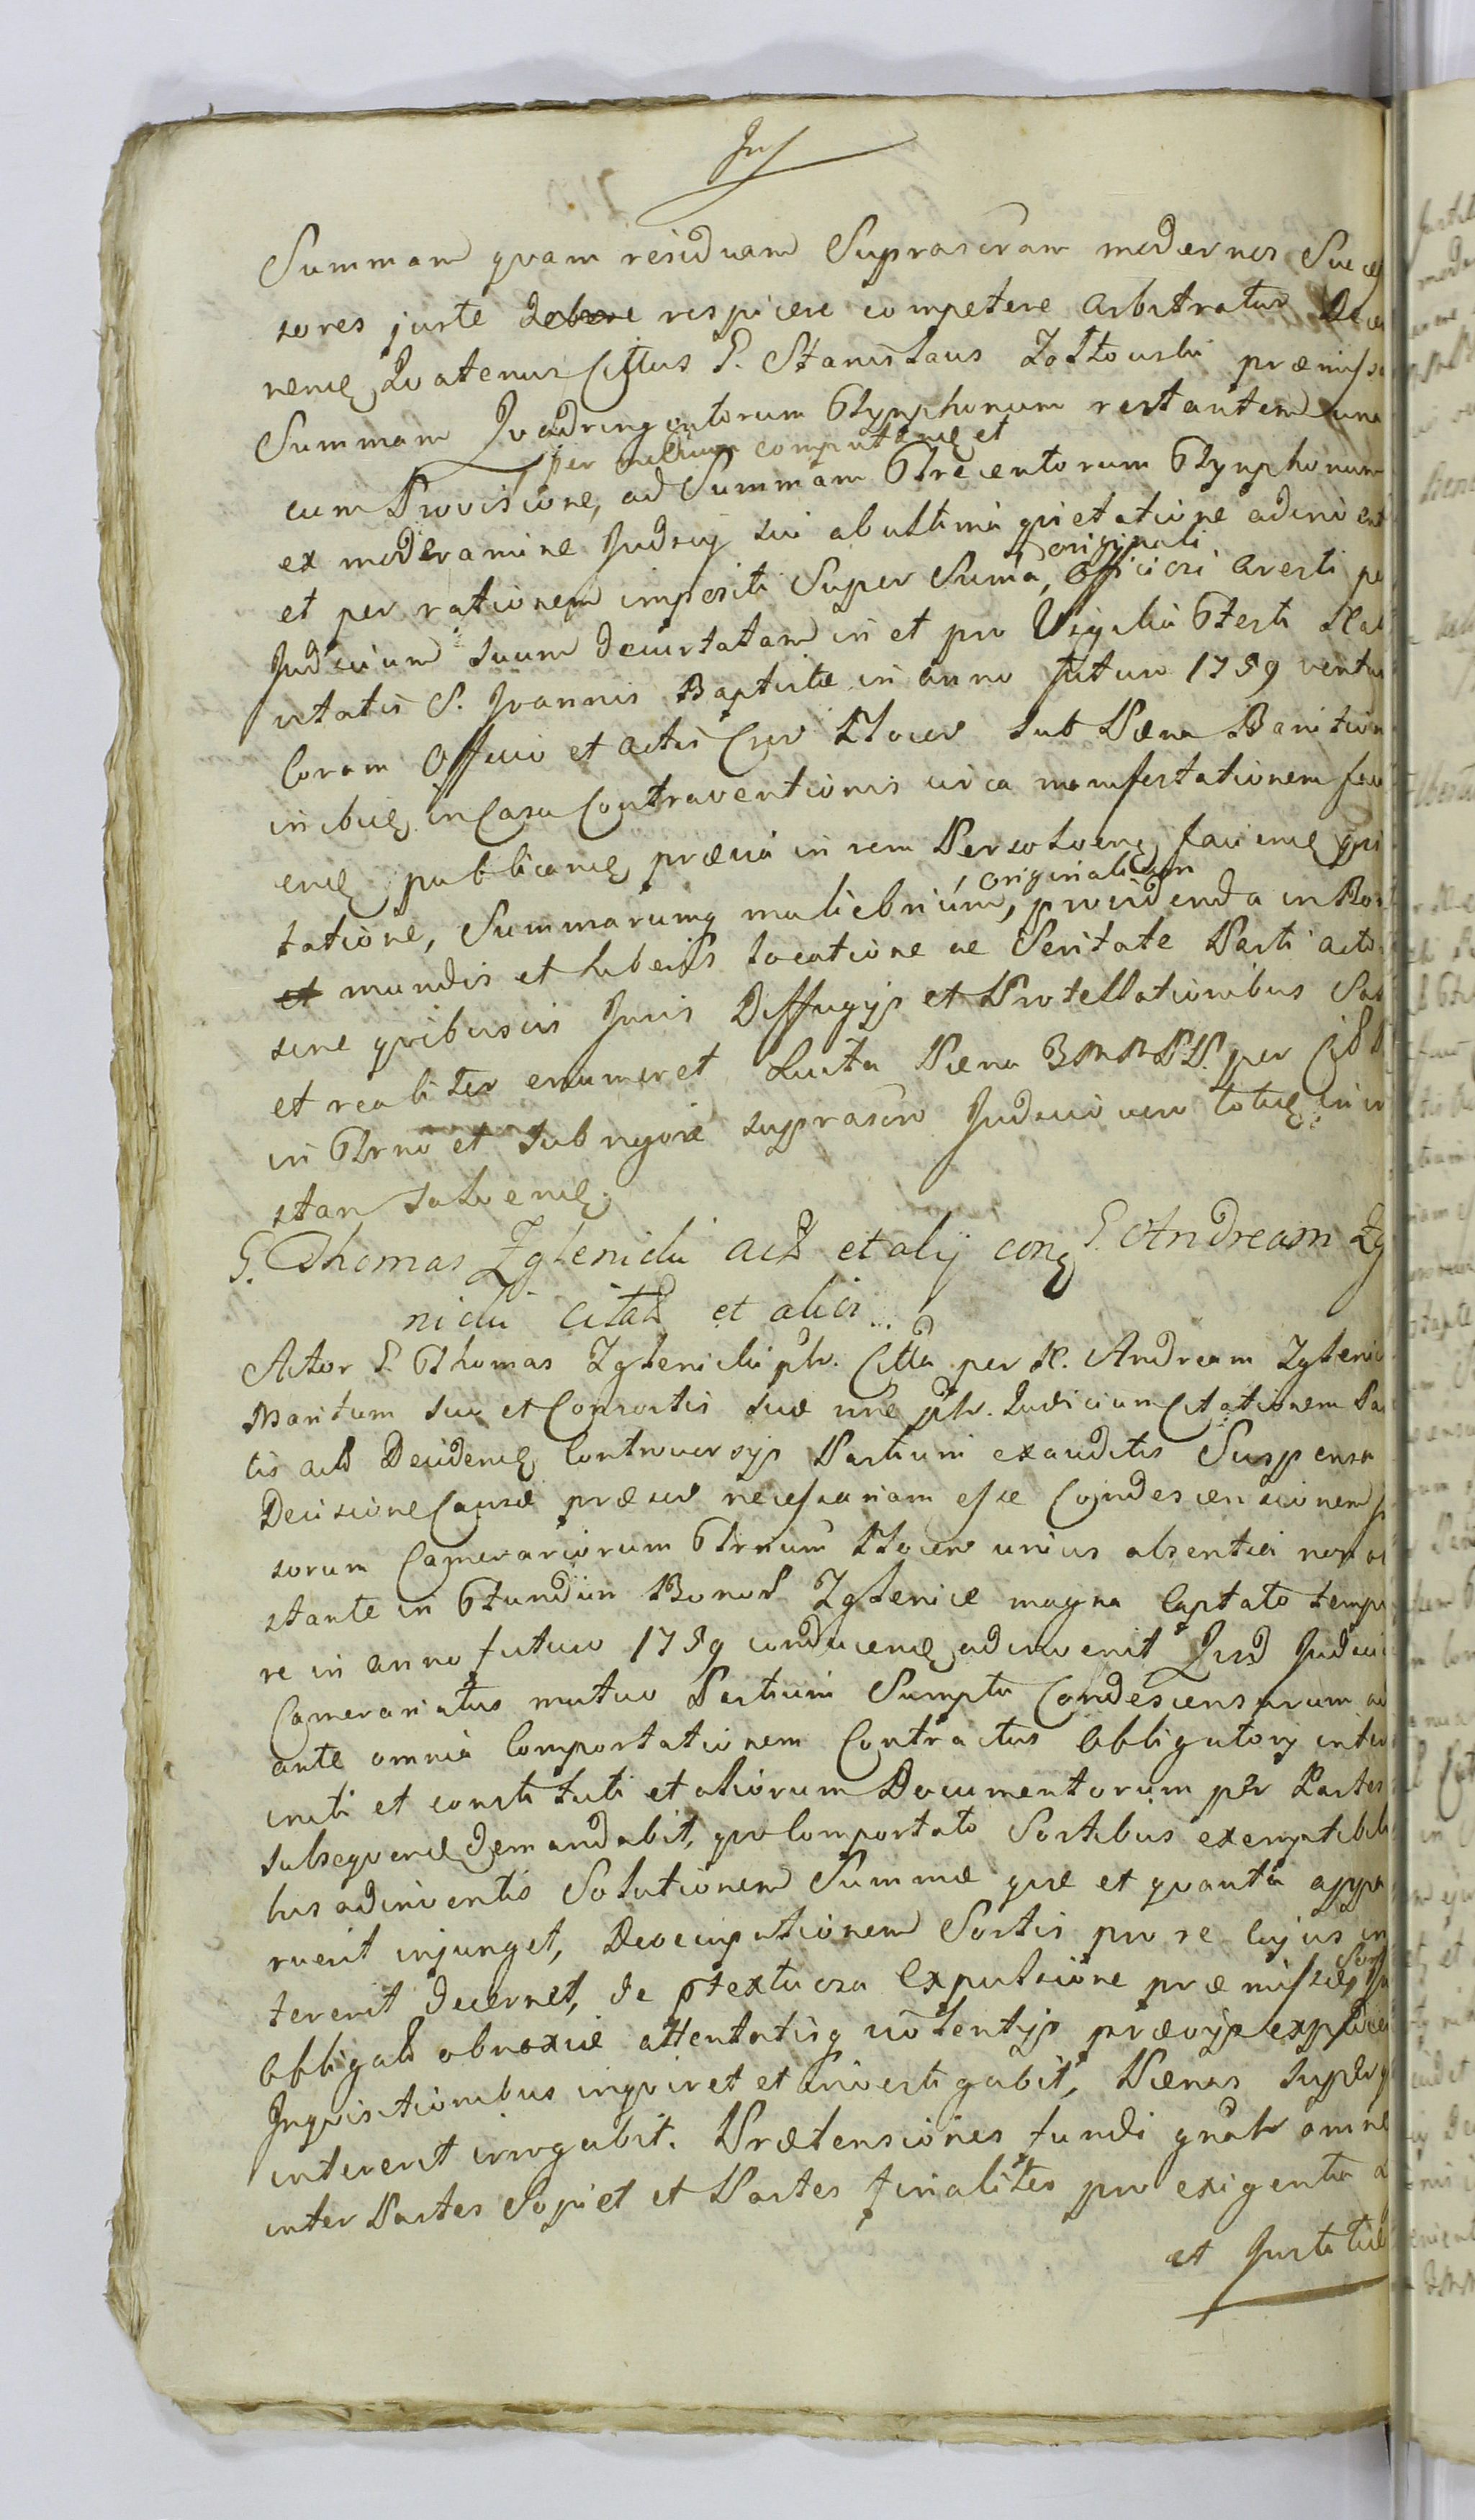 In
Summam quam residuam Suprascram modernos Succe
sores juste debere respicere competere arbitratur Decer
nend Quatenus Cittus G. Stanislaus Zołtowski præmissa
Summam Quadringentorum Tynphonum restantem una
per medium computand et
cum Provisione, ad Summam Trecentorum Tynphonum
ex moderamine Judicij sui ab ultima quietatione adinvent
originali
et per rationem impositi Super Suma, officiosi aresti per
Judicium suum decurtatam in et pro Vigilia Festi Nat
vitatis S. Joannis Baptistæ in anno futuro 1759 ventur
Coram Officio et actis Crbr Plocen sub Pæna Banition
inibid in Casu Contraventionis circa manifestationem faci
end publicand prævia in rem Persolvend faciend qui
originalium
tatione, Summarumq muliebrium, providenda in Bon
et mundis et liberis locatione ac Seritate Parti acto
sine quibusvis Juris Diffugijs et Protellationibus Sat
et realiter enumeret Luita Pæna 3 M M PP. per Citt
in Trno et sub rigore suprascro Judicio vero totid in in
stan solvend
G. Thomas Zglenicki act et alij cong G. Andream Zg
nicki citat et alios
Actor G. Thomas Zglenicki ptr. Citta per N. Andream Zglenic
Maritum suu et Consortis suæ nne ptr. Judicium Citationem Par
tis act Decidend Controversijs Partium exauditis Suspensa
Decisione Causæ præsen necessariam esse Condescensionem
sorum Camerariorum Trnum Plocen unius absentia non ob
stante in Fundum Bonor Zglenice magna Captato tempo
re in anno futuro 1759 conducend adinvenit Quod Judici
Camerariatus mutuo Partium Sumptu Condescensurum
ante omnia Comportationem Contractus obligatorij inter
initi et constituti et aliorum Documentorum per Partes
subsequend demandabit, quo Comportato Sortibus exemptibili
bus adinventis Solutionem Summæ quæ et quanta appa
ruerit injunget, Deoccupationem Sortis pro re cujus in
tererit decernet, de ptextuosa Expulsione præmissæ
obligat obnoxiæ attentatisq violentijs prævijs expedien
Inquisitionibus inquiret et investigabit, Pænas super
intererit irrogabit. Prætensiones fundi gnaltr omne
inter Partes Sopiet et Partes finaliter pro exigentia
et Justitiæ